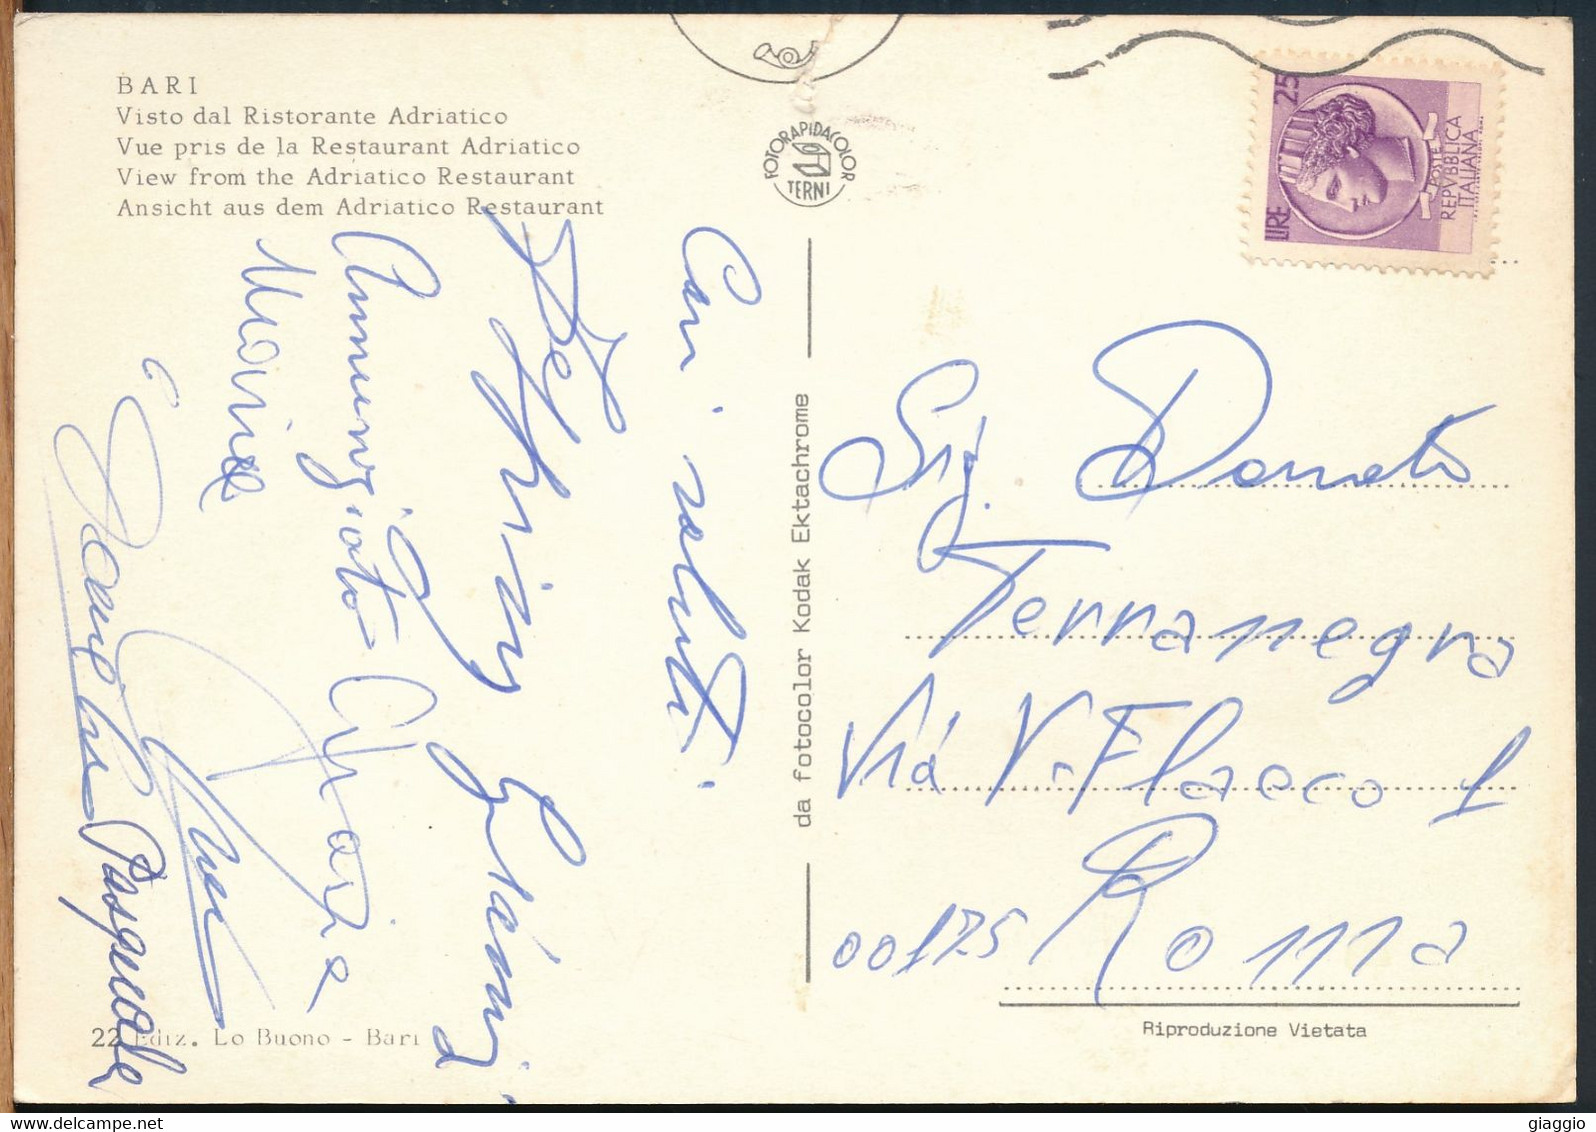 BARI
Visto dal Ristorante Adriatico
Vue pris de la Restaurant Adriatico
View from the Adriatico Restaurant
Ansicht aus dem Adriatico Restaurant
FOTORAPIDACOLOR
TERNI
LIRE 25
POSTE
REPVBBLICA
ITALIANA
Cari saluti
Annunziato
Maria
Pasquale
da fotocolor Kodak Ektachrome
Sig. Donato
Terranegra
Via V. Flacco 1
00175 Roma
22 Ediz. Lo Buono - Bari
Riproduzione Vietata
giaggio